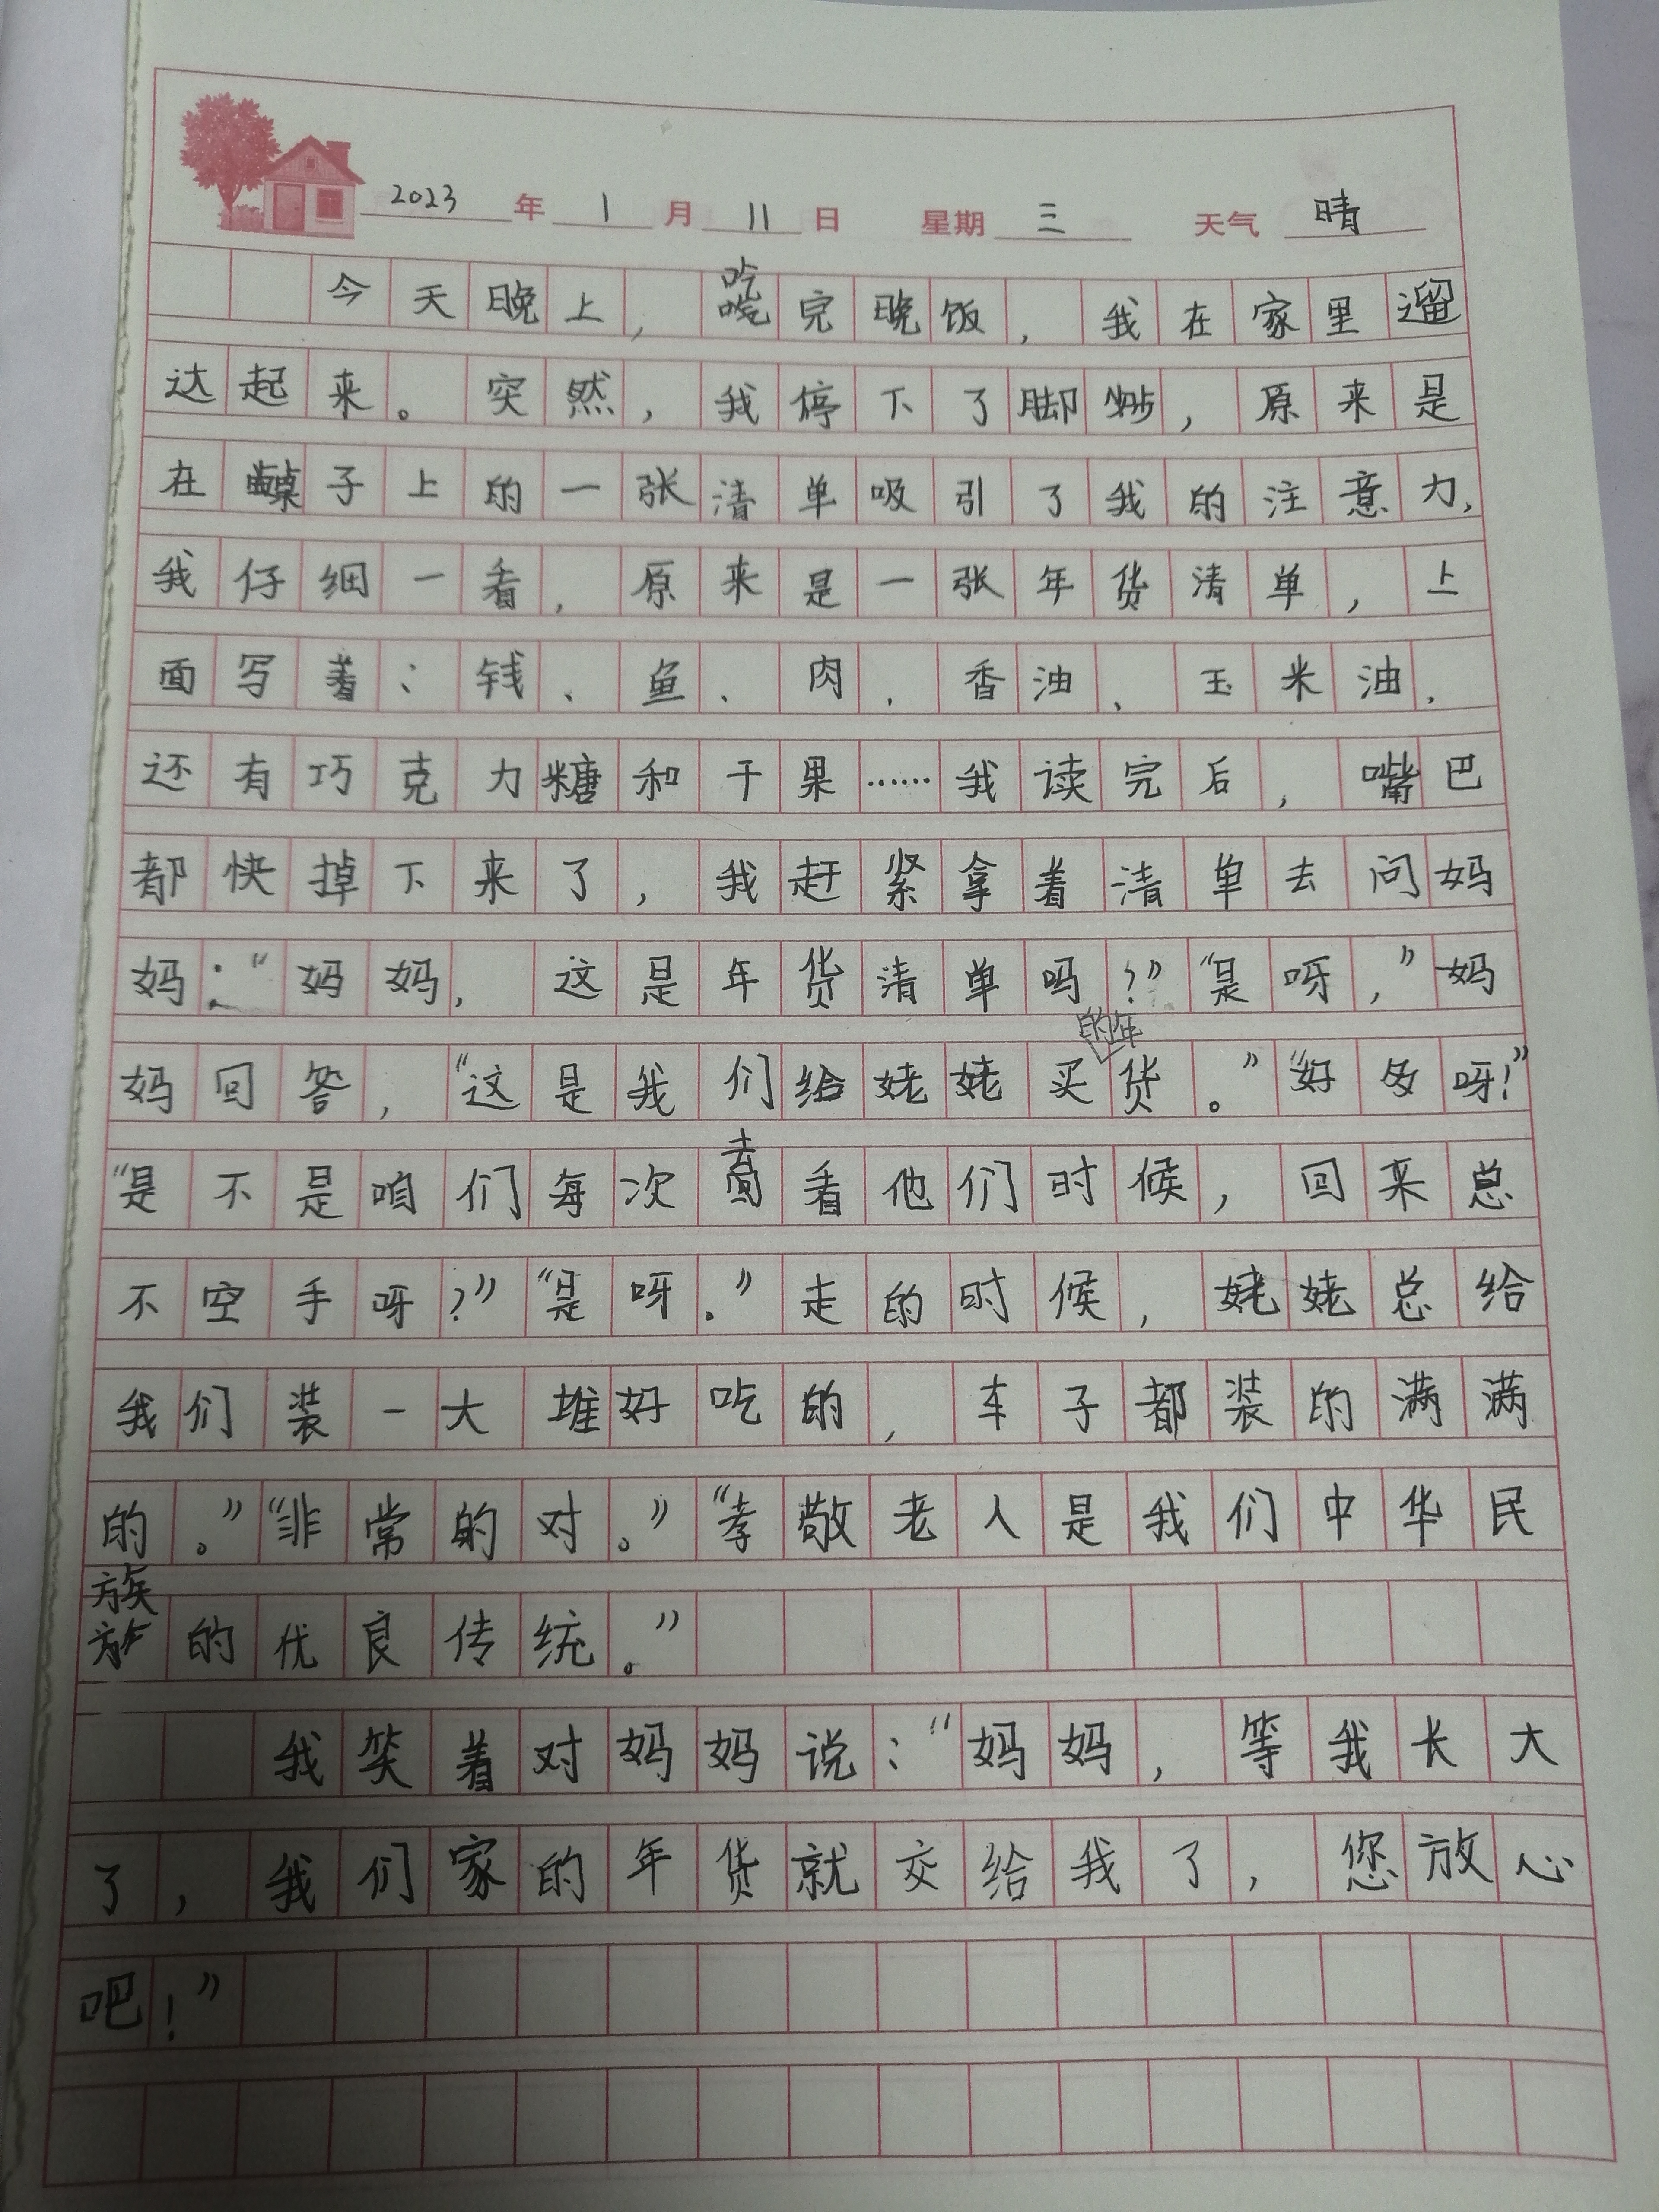 2023年1月11日 星期三 天气 晴
今天晚上，吃完晚饭，我在家里遛
达起来。突然，我停下了脚步，原来是
在桌子上的一张清单吸引了我的注意力，
我仔细一看，原来是一张年货清单，上
面写着：钱、鱼、肉、香油、玉米油、
还有巧克力糖和干果……我读完后，嘴巴
都快掉下来了，我赶紧拿着清单去问妈
妈：“妈妈，这是年货清单吗？”“是呀，”妈
妈回答，“这是我们给姥姥买的年货。”“好多呀！”
“是不是咱们每次去看他们时候，回来总
不空手呀？”“是呀。”走的时候，姥姥总给
我们装一大堆好吃的，车子都装的满满
的。”“非常的对。”“孝敬老人是我们中华民
族的优良传统。”
我笑着对妈妈说：“妈妈，等我长大
了，我们家的年货就交给我了，您放心
吧！”